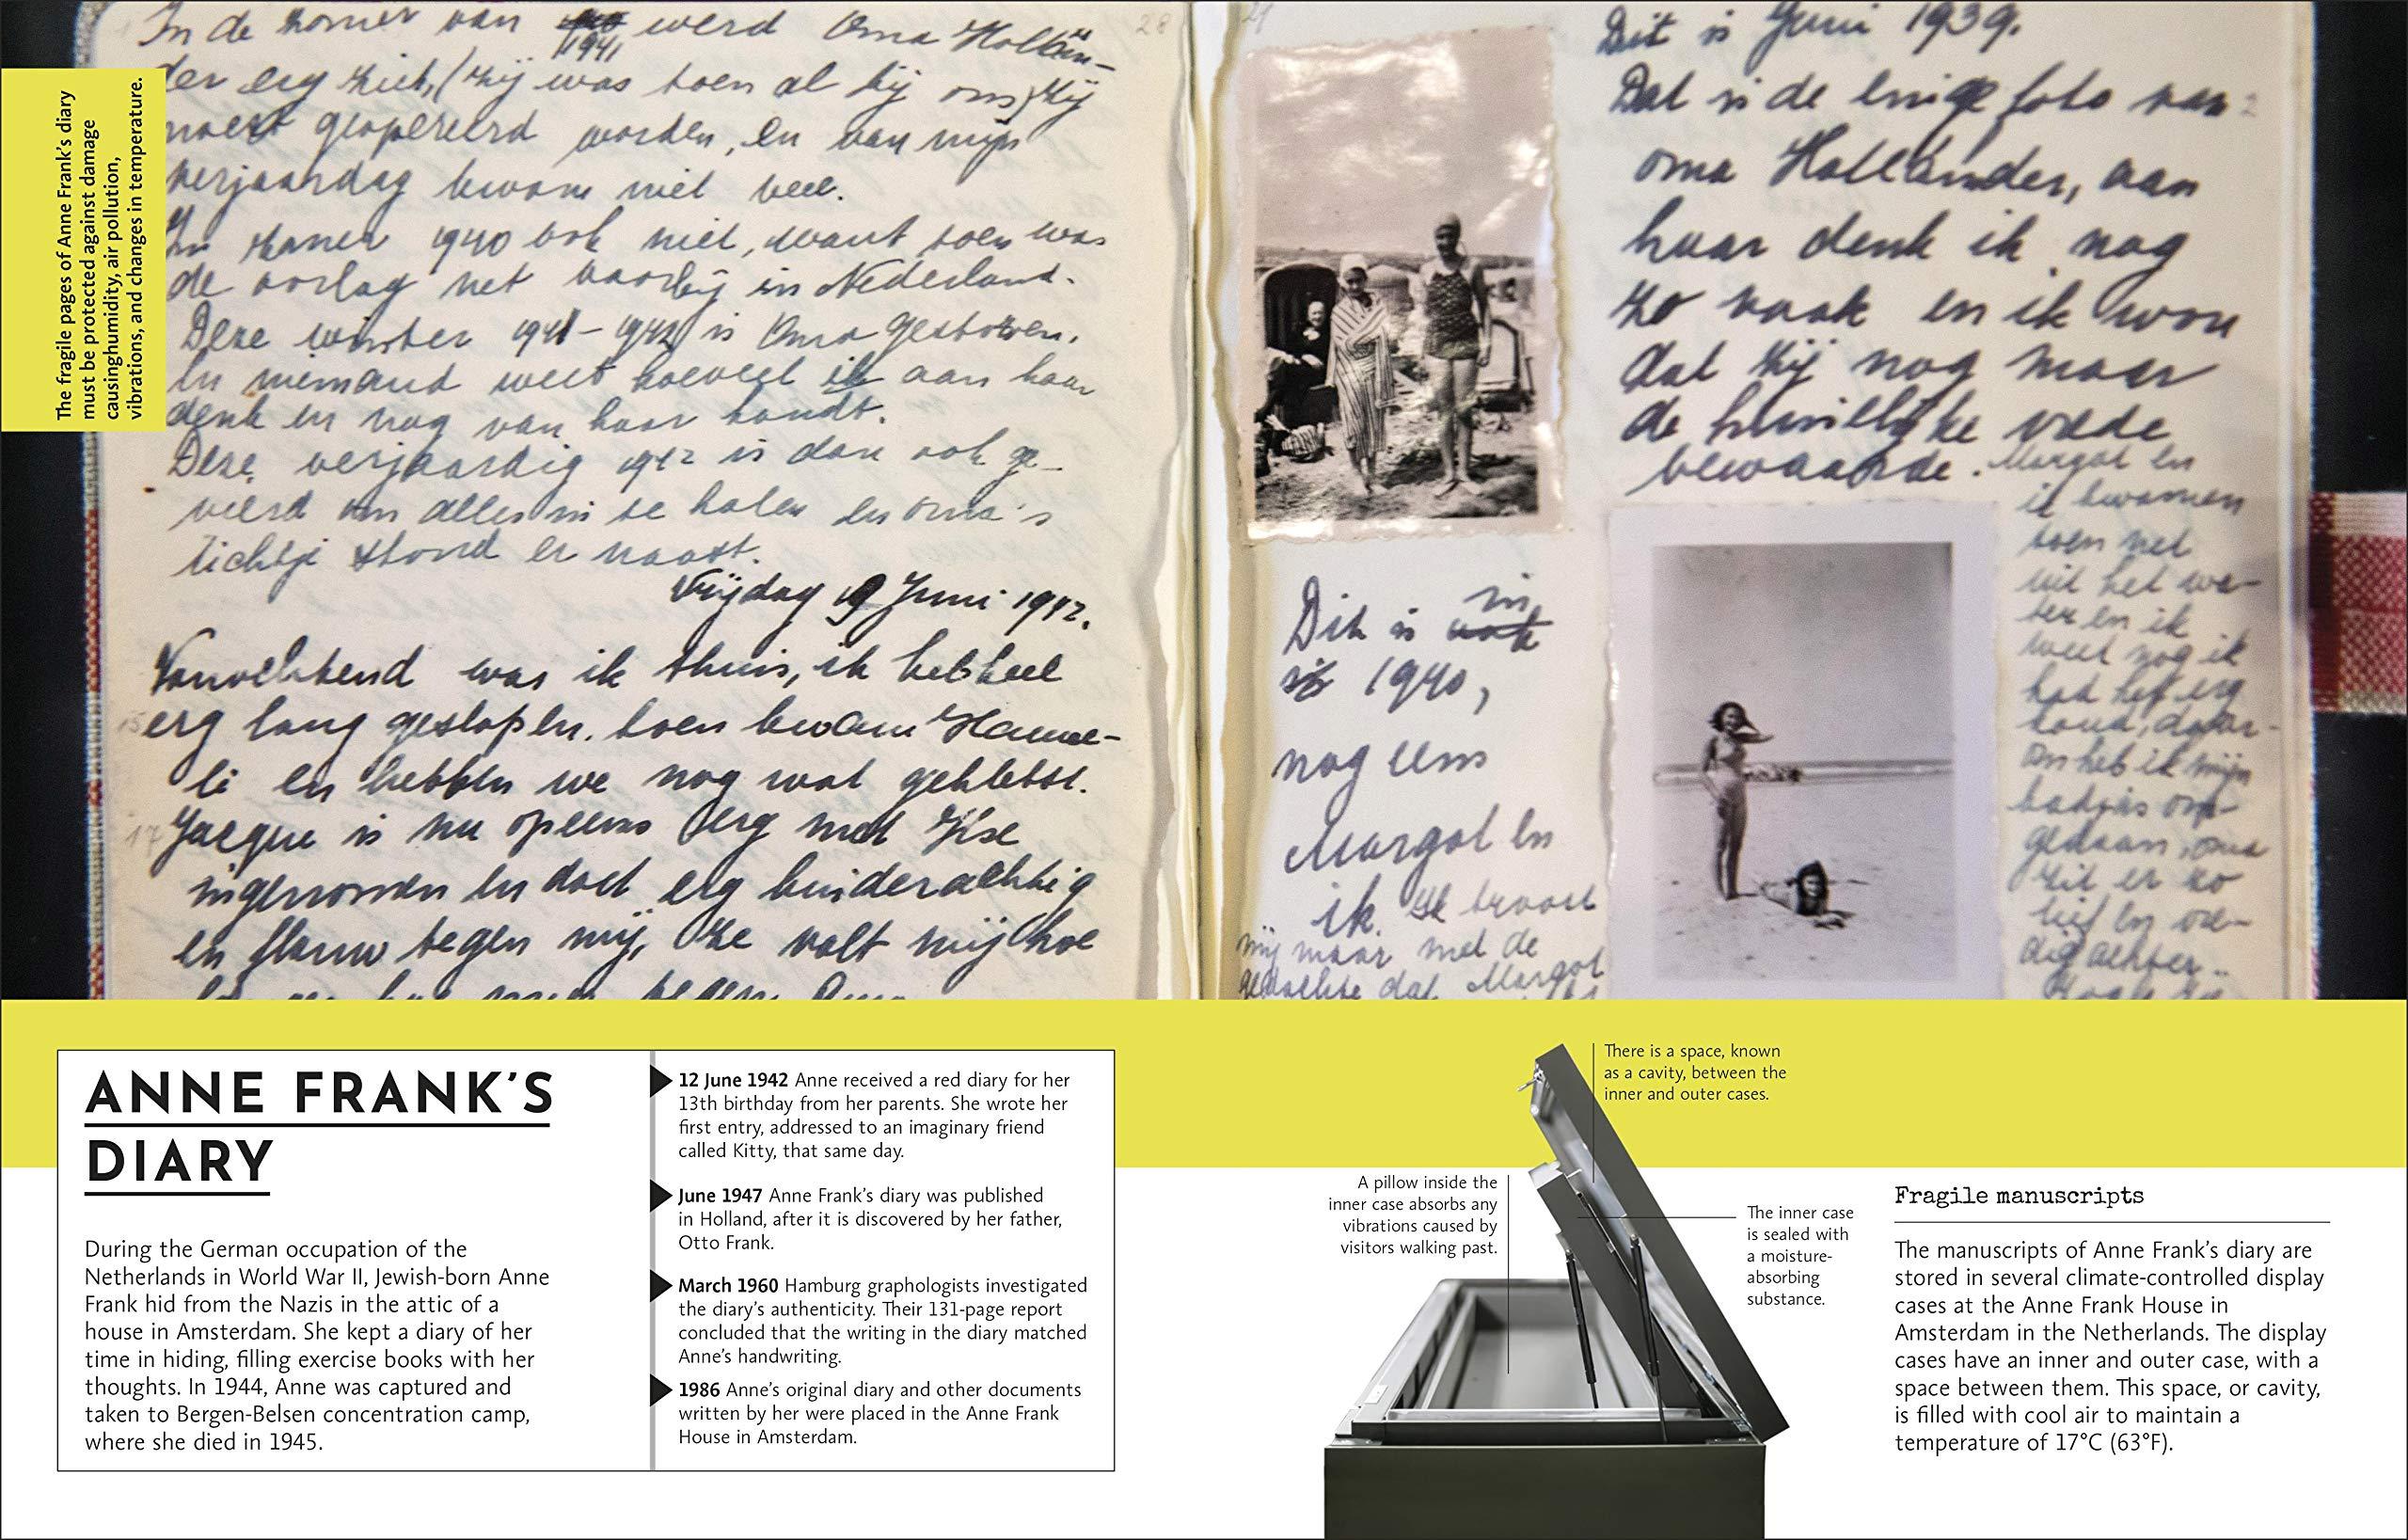 In de zomer van 1941 werd Oma Hollän-
der erg ziek, (zij was toen al bij ons) zij
moest geopereerd worden, en van mijn
verjaardag kwam niet veel.
In zomer 1940 ook niet, want toen was
de oorlog net voorbij in Nederland.
Deze winter 1941-1942 is Oma gestorven.
En niemand weet hoeveel ik aan haar
denk en nog van haar houdt.
Deze verjaardag 1942 is dan ook ge-
vierd om alles in te halen en oma's
lichtje stond er naast.
Vrijdag 19 Juni 1942.
Vanochtend was ik thuis, ik heb heel
erg lang geslapen, toen kwam Hanne-
li en hebben we nog wat gekletst.
Jacque is nu opeens erg met Ilse
ingenomen en doet erg kinderachtig
en flauw tegen mij, ze valt mij hoe
28
Dit is Juni 1939.
Dat is de enige foto van
oma Hollander, aan
haar denk ik nog
zo vaak en ik wou
dat zij nog maar
de huiselijke vrede
bewaarde. Margot en
ik kwamen
toen net
uit het wa-
ter en ik
weet nog ik
had het erg
koud, daar-
om heb ik mijn
badjas om-
gedaan, oma
zit er zo
lief en vre-
dig achter..
Dit is in
1940,
nog eens
Margot en
ik. Ik troost
mij maar met de
gedachte dat Margot
The fragile pages of Anne Frank's diary
must be protected against damage
causinghumidity, air pollution,
vibrations, and changes in temperature.
ANNE FRANK'S
DIARY
During the German occupation of the
Netherlands in World War II, Jewish-born Anne
Frank hid from the Nazis in the attic of a
house in Amsterdam. She kept a diary of her
time in hiding, filling exercise books with her
thoughts. In 1944, Anne was captured and
taken to Bergen-Belsen concentration camp,
where she died in 1945.
12 June 1942 Anne received a red diary for her
13th birthday from her parents. She wrote her
first entry, addressed to an imaginary friend
called Kitty, that same day.
June 1947 Anne Frank's diary was published
in Holland, after it is discovered by her father,
Otto Frank.
March 1960 Hamburg graphologists investigated
the diary's authenticity. Their 131-page report
concluded that the writing in the diary matched
Anne's handwriting.
1986 Anne's original diary and other documents
written by her were placed in the Anne Frank
House in Amsterdam.
There is a space, known
as a cavity, between the
inner and outer cases.
A pillow inside the
inner case absorbs any
vibrations caused by
visitors walking past.
The inner case
is sealed with
a moisture-
absorbing
substance.
Fragile manuscripts
The manuscripts of Anne Frank's diary are
stored in several climate-controlled display
cases at the Anne Frank House in
Amsterdam in the Netherlands. The display
cases have an inner and outer case, with a
space between them. This space, or cavity,
is filled with cool air to maintain a
temperature of 17°C (63°F).